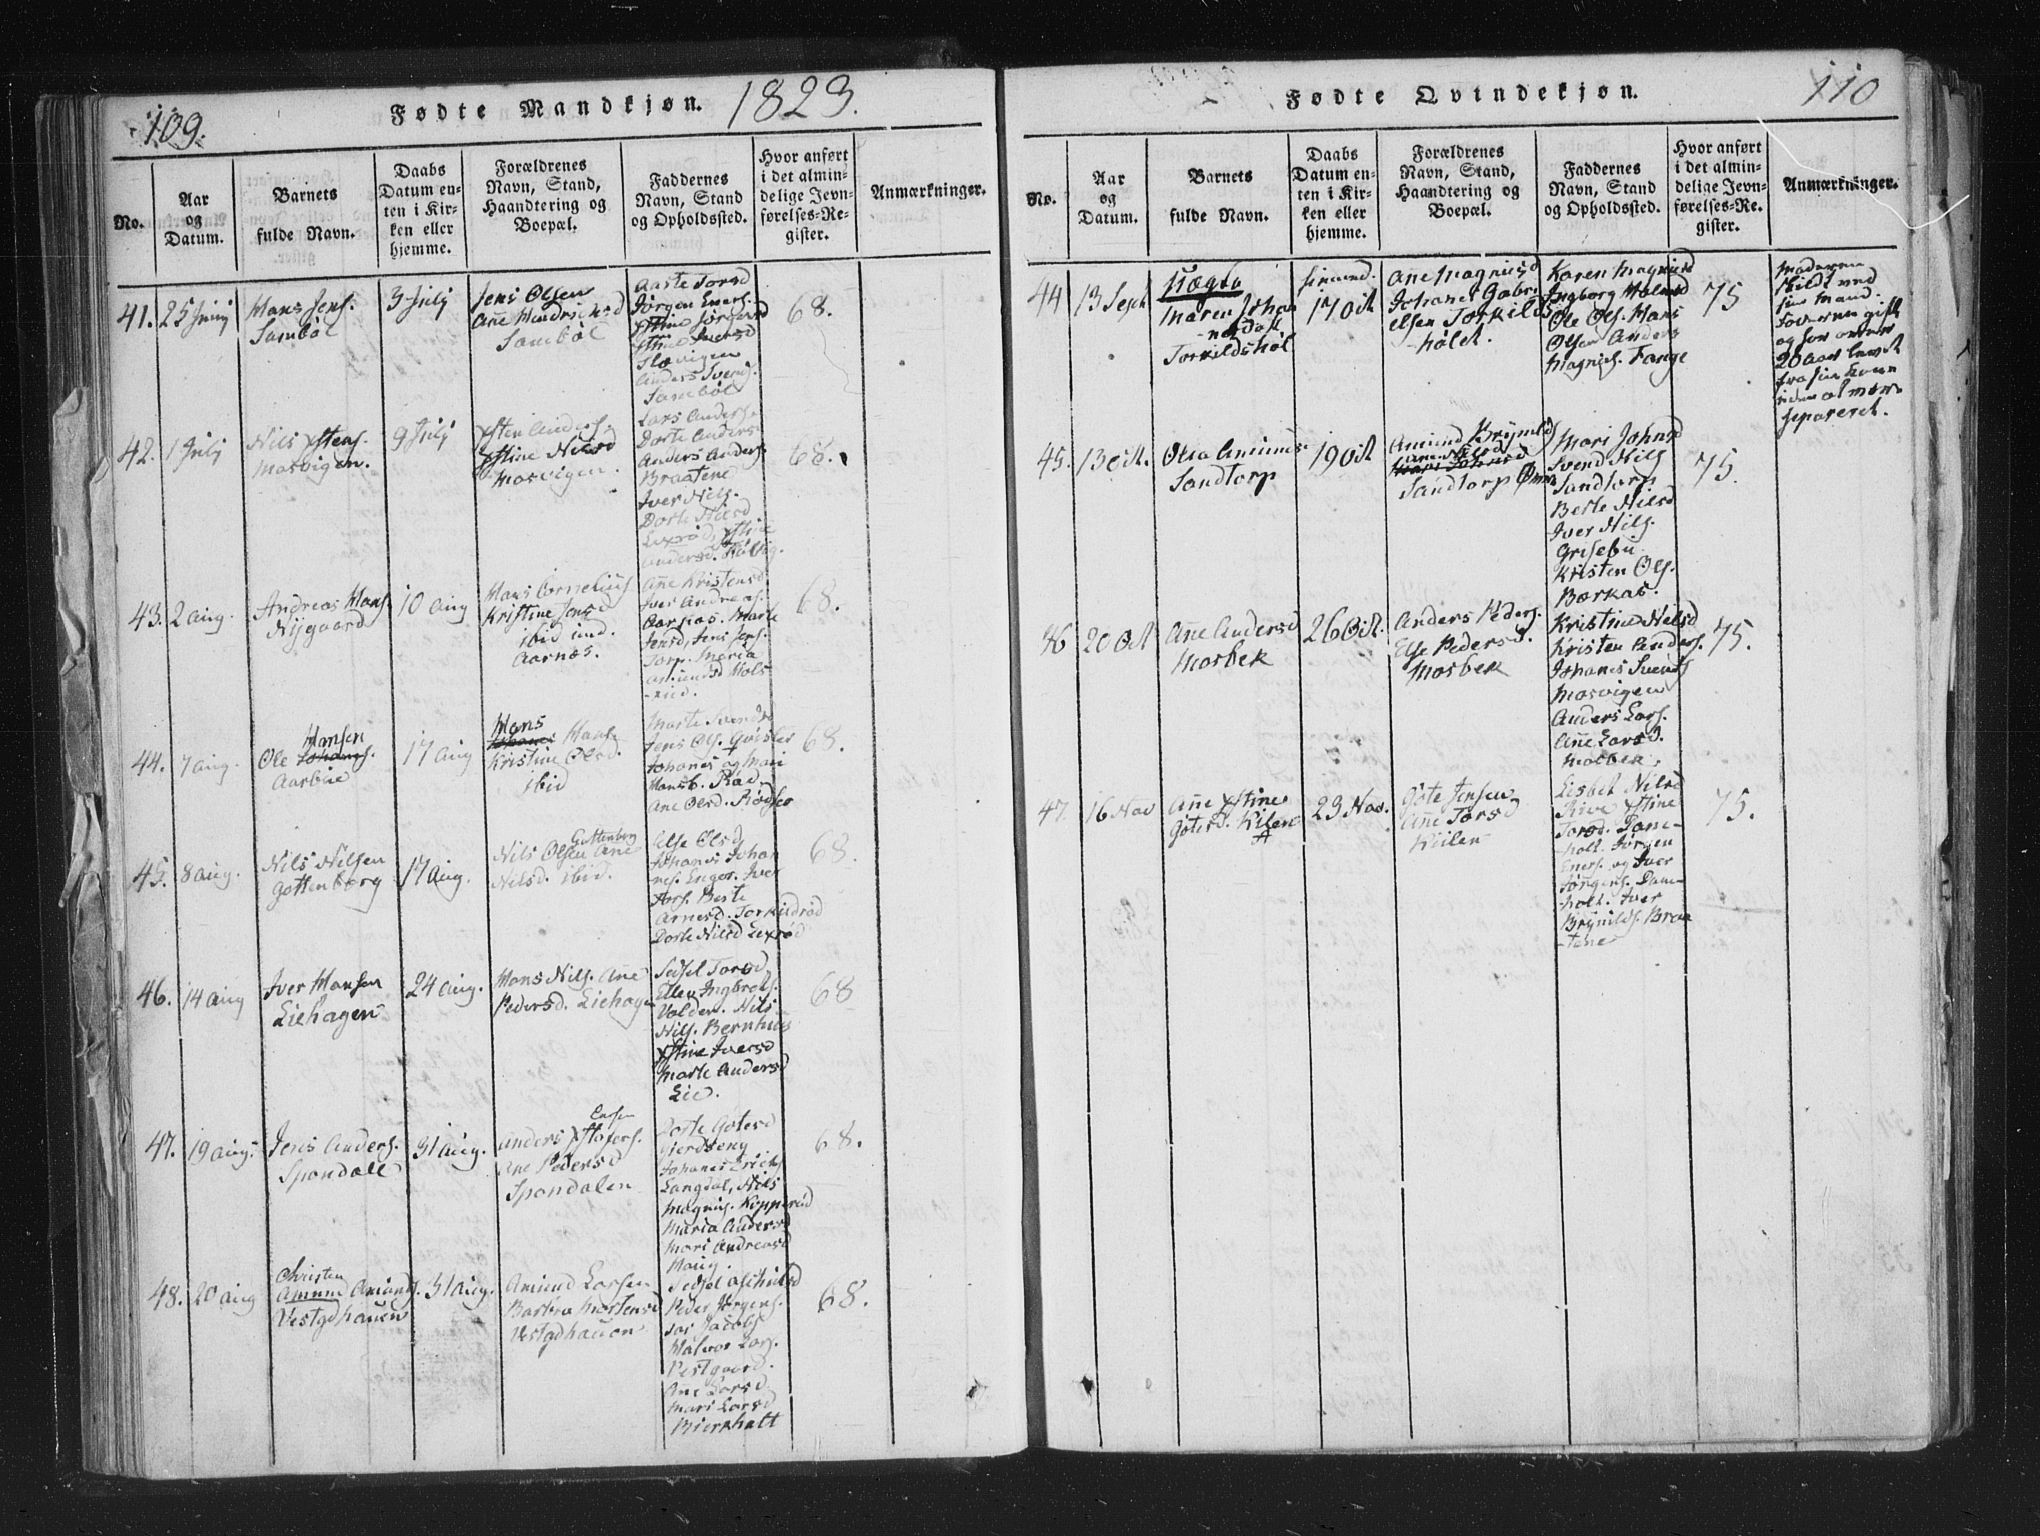 109.
Fødte Mandkjøn. 1823.
No.
Aar
og
Datum.
Barnets
fulde Navn.
Daabs
Datum en-
ten i Kir-
ken eller
hjemme.
Forældrenes
Navn, Stand,
Haandtering og
Boepæl.
Faddernes
Navn, Stand
og Opholdssted.
Hvor anført
i det almin-
delige Jevn-
førelses-Re-
gister.
Anmærkninger.
41. 25 Junij
Hans Jens.
Sambøl
3 Julij
Jens Olsen
Ane Hendrichsd
Sambøl
Aaste Torsd
Jörgen Eners.
Xstine Jörgensd
Xstine Iversd
Anders Svends.
Sambøl
68.
42. 1 Julij
Nils Xstens.
Mosvigen.
9 Julij
Xsten Anders.
Xstine Nilsd
Mosvigen.
Lars Anders.
Dorte Andersd
Anders Anders.
Braatene
Iver Nils.
Dorte Nilsd
Lexrød, Xstine
Andersd.
68.
43. 2 Aug.
Andreas Hans.
Nÿgaard
10 Aug
Hans Cornelius
Kristine Jensd
ibid ind.
Aarnæs.
Ane Kristensd
Iver Andreas.
Aarnæs. Marte
Jensd, Jens Jens.
Torp. Maria
Amundsd Hols-
-rud.
68.
44. 7 Aug.
Hansen
Ole Johans.
Aarbue
17 Aug
Hans
Johanes Hans.
Kristine Olsd.
ibid
Marte Svendsd
Jens Ols.
Johanes og Mari
Hansb. Rød
Ane Olsd.
68.
45. 8 Aug.
Nils Nilsen
Gottenborg
17 Aug.
Gottenborg
Nils Olsen Ane
Nilsd. ibid.
Else Olsd
Johanes Johan
nes. Enger. Iver
Tors. Berte
Arnesd. Torkildrød
Dorte Nilsd Lexrød
68.
46. 14 Aug
Iver Hansen
Liehagen
24 Aug.
Hans Nils. Ane
Pedersd. Liehagen
Sidsel Torsd
Ellen Ingbretsd.
Volden. Nils
Nils. Bernhus
Xstine Iversd
Marte Andersd
Lie.
68
47. 19 Aug.
Jens Anders.
Spondale
31 Aug.
Anders Xstofers.
Ane Pedersd
Spondalen
Dorte Gotersd
Gierdseng
Johanes Erichs.
Langdal, Nils
Magnus. Kopperud
Maria Andersd
Mari Andreasd
Haug.
68.
48. 20 Aug
Christen
Amund Amunds.
Vestgdhauen
31 Aug.
Amund Larsen
Barbra Mortensd
Vestgdhauen
Sidsel Aschildsd
Peder Jörgens.
Jacobs.
Halvor Lars.
Vestgaard.
Ane Larsd
Mari Larsd
Bierkholt
68.
110
Fødte Qvindekjøn.
No.
Aar
og
Datum.
Barnets
fulde Navn.
Daabs
Datum en-
ten i Kir-
ken eller
hjemme.
Forældrenes
Navn, Stand,
Haandtering og
Boepæl.
Faddernes
Navn, Stand
og Opholdssted.
Hvor anført
i det almin-
delige Jevn-
førelses-Re-
gister.
Anmærkninger.
44 13 Sept
Uægte
Maren Johan
-nesdatt
Torkildshol
17 Oct
Ane Magnusd
Johanes Gabri
elsen Torkilds
-holet.
Karen Magnusd
Ingborg Halvorsd
Ole Ols. Hans
Olsen Anders
Magnus. Tange
75
Moderen
skildt ved
sin Mand.
Faderen gift
og har omtrent
20 Aar levet
fra sin Kone
uden at være
separeret.
45. 13 Oct.
Olea Amunds
Sandtorp
19 Oct
Amund Brÿnilds
Ane Nilsd
Mari Johnsd
Sandtorp
Mari Johnsd
Svend Nils
Sandtorp
Berte Nilsd
Iver Nils.
Grisebu
Kristen Ols.
Börkås.
75.
46 20 Oct
Ane Andersd
Mosbek
26 Oct.
Anders Peders.
Else Pedersd.
Mosbek
Kristine Nilsd
Kristen Anders.
Johanes Svends
Mosvigen
Anders Lars.
Ane Larsd.
Mosbek.
75.
47. 16 Nov
Ane Xstine
Gotersd. Kilen
23 Nov.
Göte Jensen
Ane Torsd
Kiilen
Lisbet Nilsd
Kive Xstine
Torsd. Dam-
holt. Jörgen
Eners. og Iver
Jörgens. Dam-
holt. Iver
Brÿnilds. Braa
-tene
75.